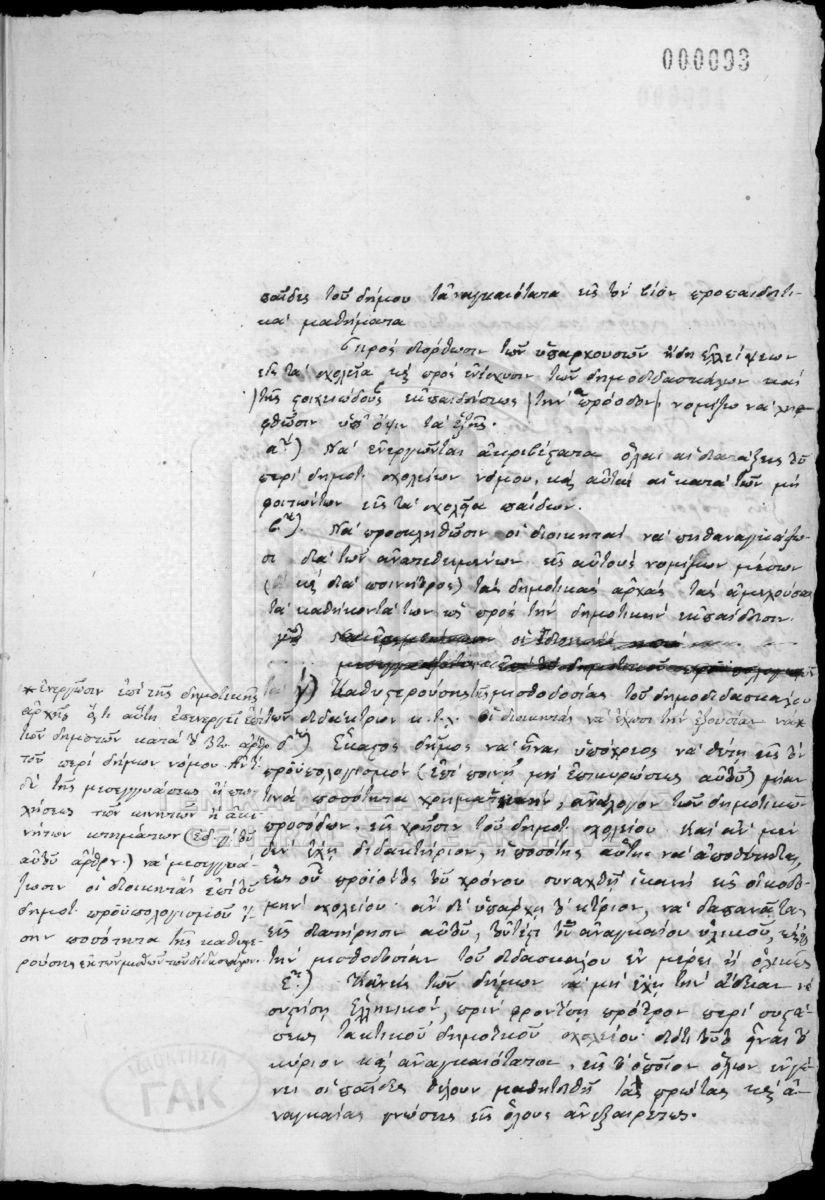 000093
παῖδες τοῦ δήμου τἀναγκαιότατα εἰς τὸν βίον προπαιδευτι-
κὰ μαθήματα
Πρὸς διόρθωσιν τῶν ὑπαρχουσῶν ἤδη ἐλλείψεων
εἰς τὰ σχολεῖα καὶ πρὸς ἐνίσχυσιν τῶν δημοδιδασκάλων καὶ
τῆς στοιχειώδους ἐκπαιδεύσεως τὴν πρόοδον, νομίζω νὰ
ληφθῶσιν ὑπ' ὄψιν τὰ ἑξῆς.
α) Νὰ ἐνεργῶνται ἀκριβέστατα ὅλαι αἱ διατάξεις τοῦ
περὶ δημοτ. σχολείων νόμου, καὶ αὐταὶ αἱ κατὰ τῶν μὴ
φοιτώντων εἰς τὰ σχολεῖα παίδων.
β) Νὰ προσκληθῶσιν οἱ διοικηταὶ νὰ πειθαναγκάζω-
σι διὰ τῶν ἀνατεθειμένων εἰς αὐτοὺς νομίμων μέσων
( καὶ διὰ ποινῆς) τὰς δημοτικὰς ἀρχὰς τὰς ἀμελούσας
τὰ καθήκοντά των ὡς πρὸς τὴν δημοτικὴν ἐκπαίδευσιν.
γ) Καθυστερούσης τῆς μισθοδοσίας τοῦ δημοδιδασκάλου
τῶν διδάκτρων κ.τ.λ. οἱ διοικηταὶ νὰ ἔχωσι τὴν ἐξουσίαν νὰ *
δ) Ἕκαστος δῆμος νὰ ἦναι ὑπόχρεως νὰ θέτῃ εἰς τὸν
προϋπολογισμὸν (ἐπὶ ποινῇ μὴ ἐπικυρώσεως αὐτοῦ) μίαν
τινὰ ποσότητα χρηματικὴν, ἀνάλογον τῶν δημοτικῶν
προσόδων, εἰς χρῆσιν τοῦ δημοτ. σχολείου. Καὶ ἂν μὲν
δὲν ἔχῃ διδακτήριον, ἡ ποσότης αὕτη νὰ ἀποθέτηται,
ἕως οὗ προϊόντος τοῦ χρόνου συναχθῇ ἱκανὴ εἰς οἰκοδο-
μὴν σχολείου· ἂν δὲ ὑπάρχῃ τὸ κτίριον, νὰ δαπανᾶται
εἰς διατήρησιν αὐτοῦ, τοῦ ἀναγκαίου ὑλικοῦ,
τὴν μισθοδοσίαν τοῦ διδασκάλου ἐν μέρει ἢ ὁλικῶς
ε) Κανεὶς τῶν δήμων νὰ μὴ ἔχῃ τὴν ἄδειαν νὰ
συστήσῃ Ἑλληνικὸν, πρὶν φροντίσῃ πρότερον περὶ συστά-
σεως τακτικοῦ δημοτικοῦ σχολείου διότι τοῦτο εἶναι τὸ
κύριον καὶ ἀναγκαιότατον, εἰς τὸ ὁποῖον ὅλων
οἱ παῖδες θέλουν μαθητευθῆ τὰς πρώτας καὶ ἀ-
ναγκαίας γνώσεις εἰς ὅλους ἀνεξαιρέτως.
* ἐνεργῶσιν ἐπὶ τῆς δημοτικῆς
ἀρχῆς ὅ,τι αὕτη ἐπενεργεῖ ἐπὶ
τῶν δημοτῶν κατὰ τὸ ἄρθρ
τοῦ περὶ δήμων νόμου. Ἀντὶ
δὲ τῆς μεσεγγυάσεως ἢ
τῶν κινητῶν ἢ ἀκι-
νήτων κτημάτων (
αὐτοῦ ἄρθρ.) νὰ μεσεγγυά-
ζωσιν οἱ διοικηταὶ ἐπὶ τοῦ
δημοτ. προϋπολογισμοῦ ἴ-
σην ποσότητα τῆς καθυστε-
ρούσης ἐκ τῶν μισθῶν τῶν διδασκάλων.
ΓΕΝΙΚΑ ΑΡΧΕΙΑ ΤΟΥ ΚΡΑΤΟΥΣ
ΙΔΙΟΚΤΗΣΙΑ
ΓΑΚ